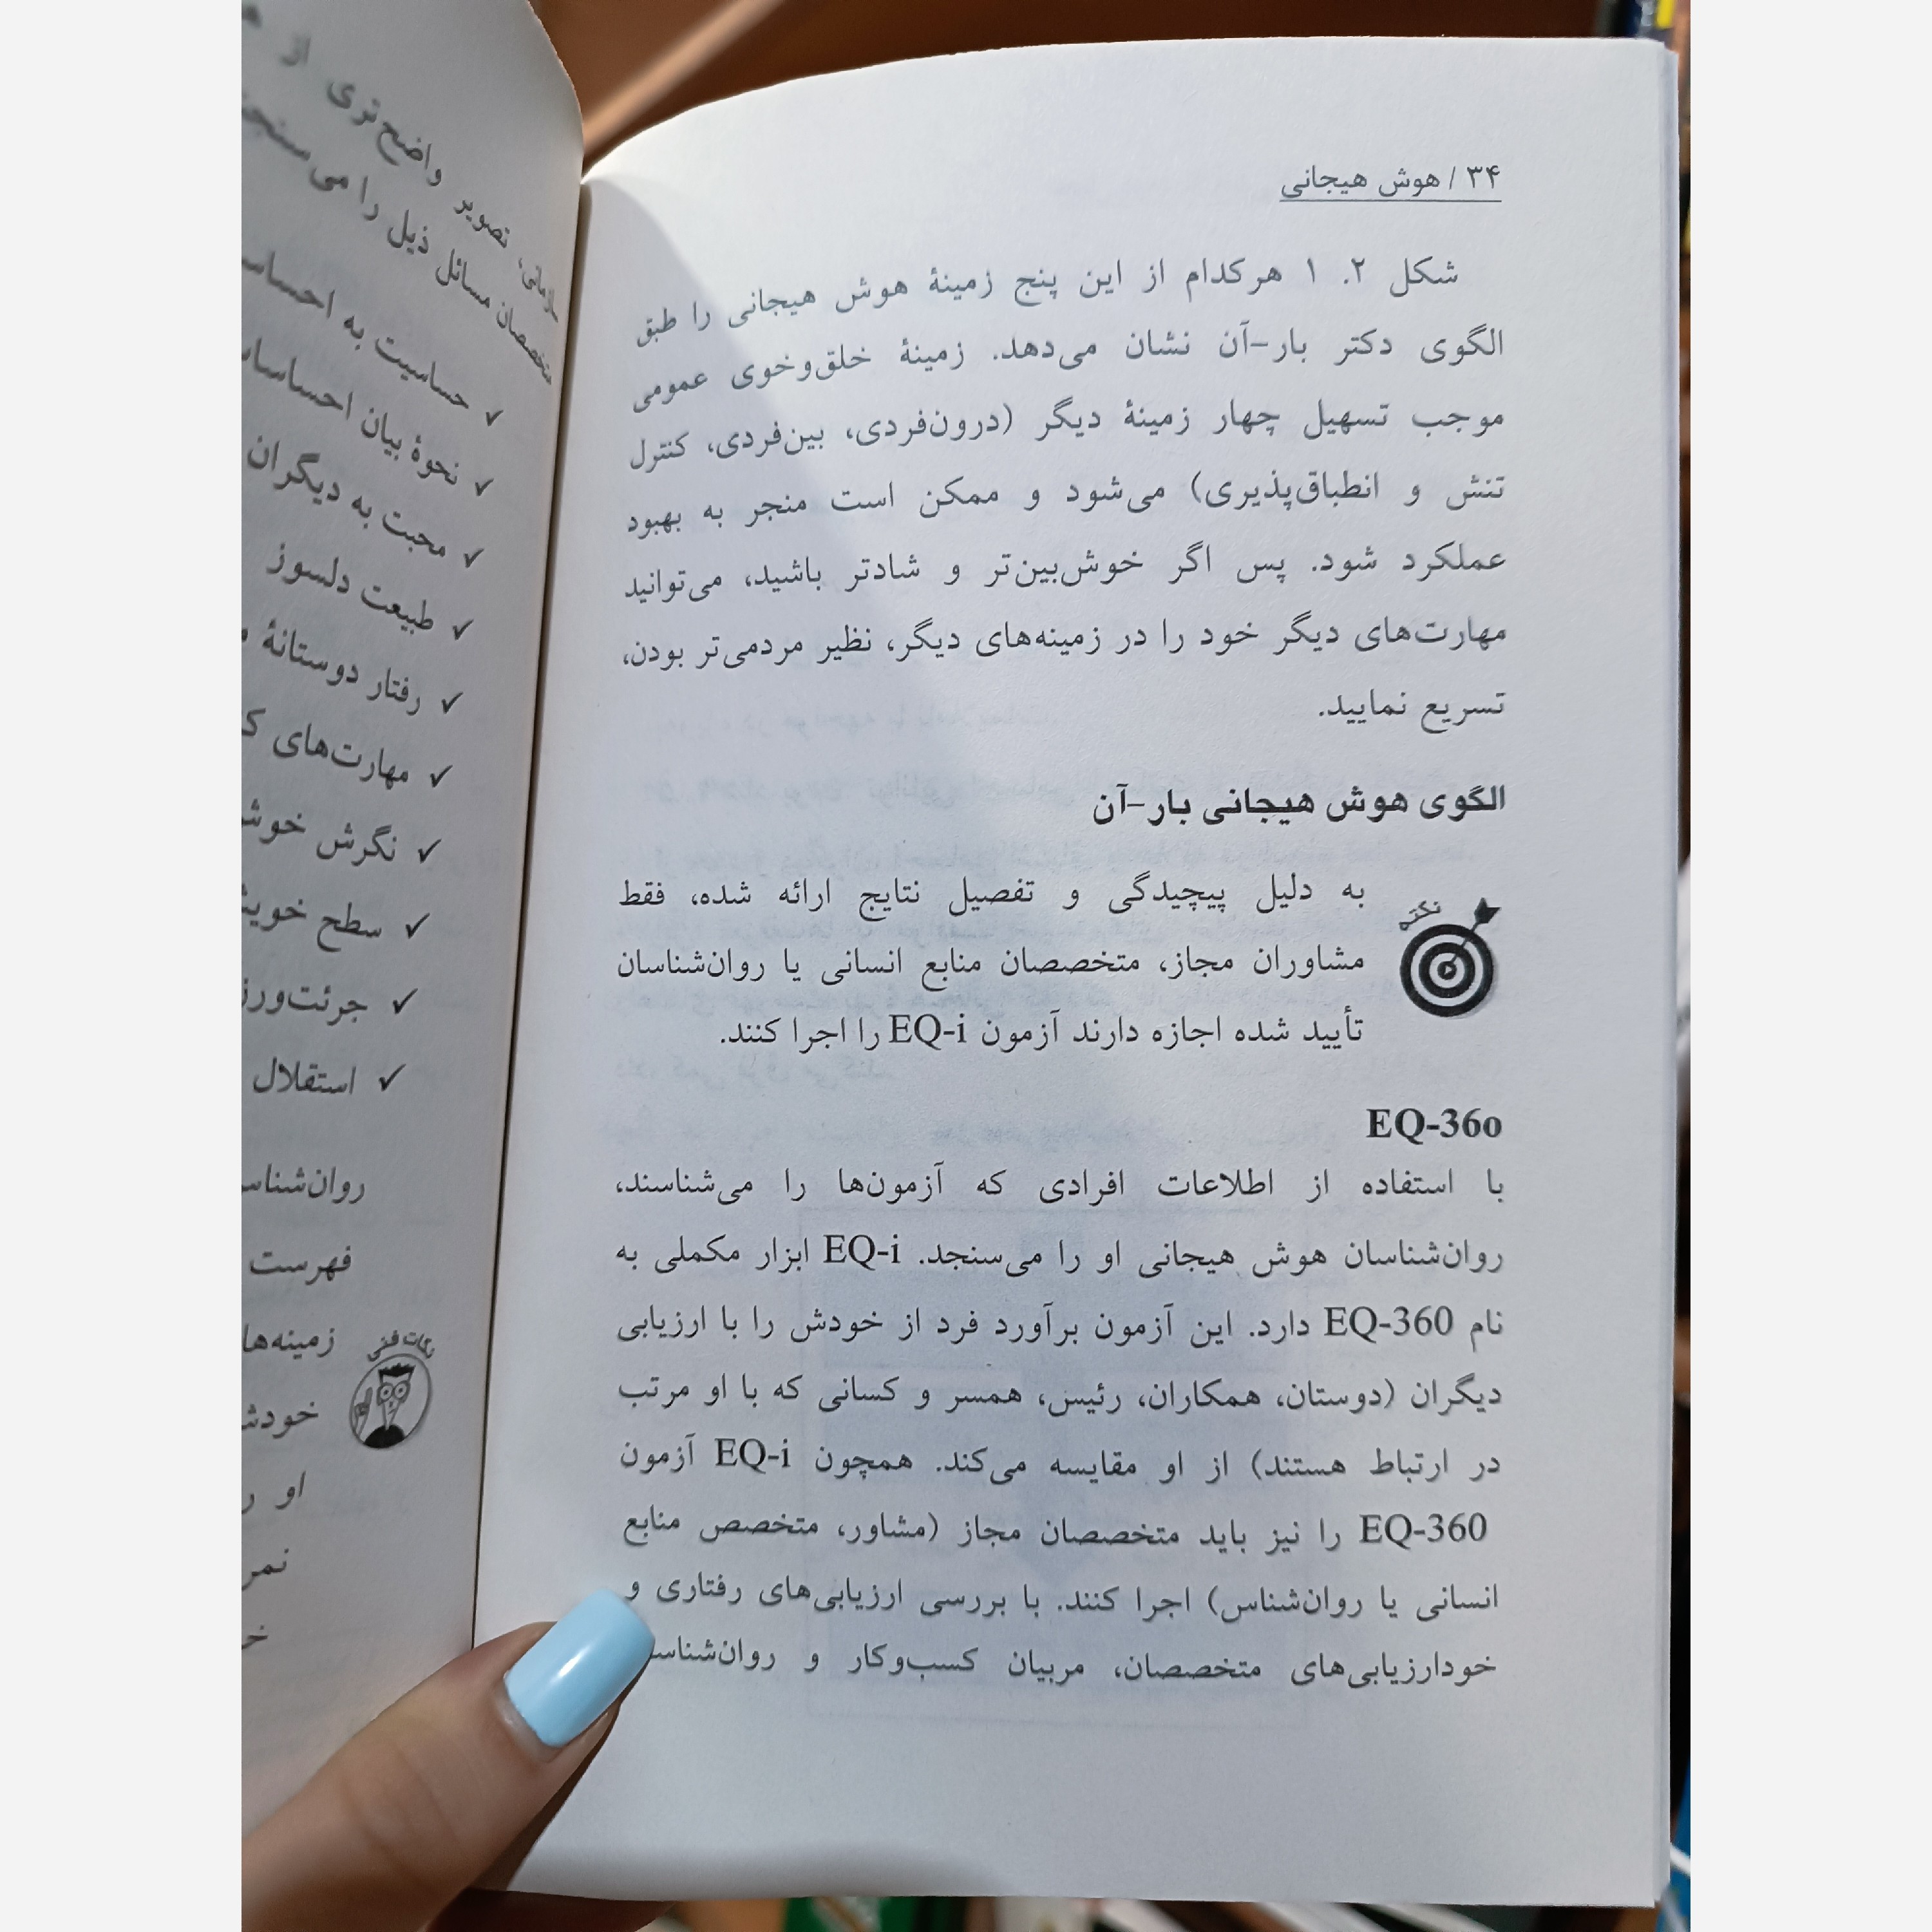 ۳۴ / هوش هیجانی
شکل ۲. ۱ هرکدام از این پنج زمینهٔ هوش هیجانی را طبق
الگوی دکتر بار-آن نشان می‌دهد. زمینهٔ خلق‌وخوی عمومی
موجب تسهیل چهار زمینهٔ دیگر (درون‌فردی، بین‌فردی، کنترل
تنش و انطباق‌پذیری) می‌شود و ممکن است منجر به بهبود
عملکرد شود. پس اگر خوش‌بین‌تر و شادتر باشید، می‌توانید
مهارت‌های دیگر خود را در زمینه‌های دیگر، نظیر مردمی‌تر بودن،
تسریع نمایید.
الگوی هوش هیجانی بار-آن
نکته
به دلیل پیچیدگی و تفصیل نتایج ارائه شده، فقط
مشاوران مجاز، متخصصان منابع انسانی یا روان‌شناسان
تأیید شده اجازه دارند آزمون EQ-i را اجرا کنند.
EQ-36o
با استفاده از اطلاعات افرادی که آزمون‌ها را می‌شناسند،
روان‌شناسان هوش هیجانی او را می‌سنجد. EQ-i ابزار مکملی به
نام EQ-360 دارد. این آزمون برآورد فرد از خودش را با ارزیابی
دیگران (دوستان، همکاران، رئیس، همسر و کسانی که با او مرتب
در ارتباط هستند) از او مقایسه می‌کند. همچون EQ-i آزمون
EQ-360 را نیز باید متخصصان مجاز (مشاور، متخصص منابع
انسانی یا روان‌شناس) اجرا کنند. با بررسی ارزیابی‌های رفتاری و
خودارزیابی‌های متخصصان، مربیان کسب‌وکار و
سازمانی، تصویر واضح‌تری از
متخصصان مسائل ذیل را
✓ حساسیت به
✓ نحوهٔ بیان
✓ محبت به دیگران
✓ طبیعت دلسوز
✓ رفتار دوستانهٔ
✓ مهارت‌های
✓ نگرش
✓ سطح
✓
✓ استقلال
فهرست
نکات فنی
او